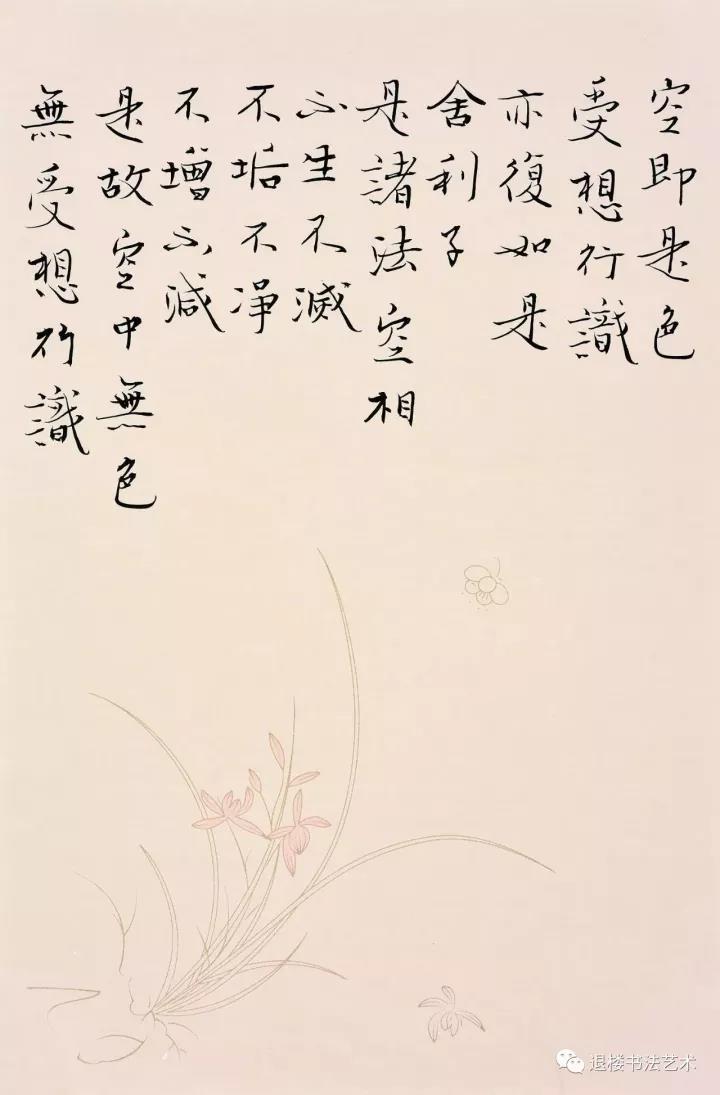 空即是色
受想行識
亦復如是
舍利子
是諸法空相
不生不滅
不垢不净
不增不減
是故空中無色
無受想行識
退楼书法艺术